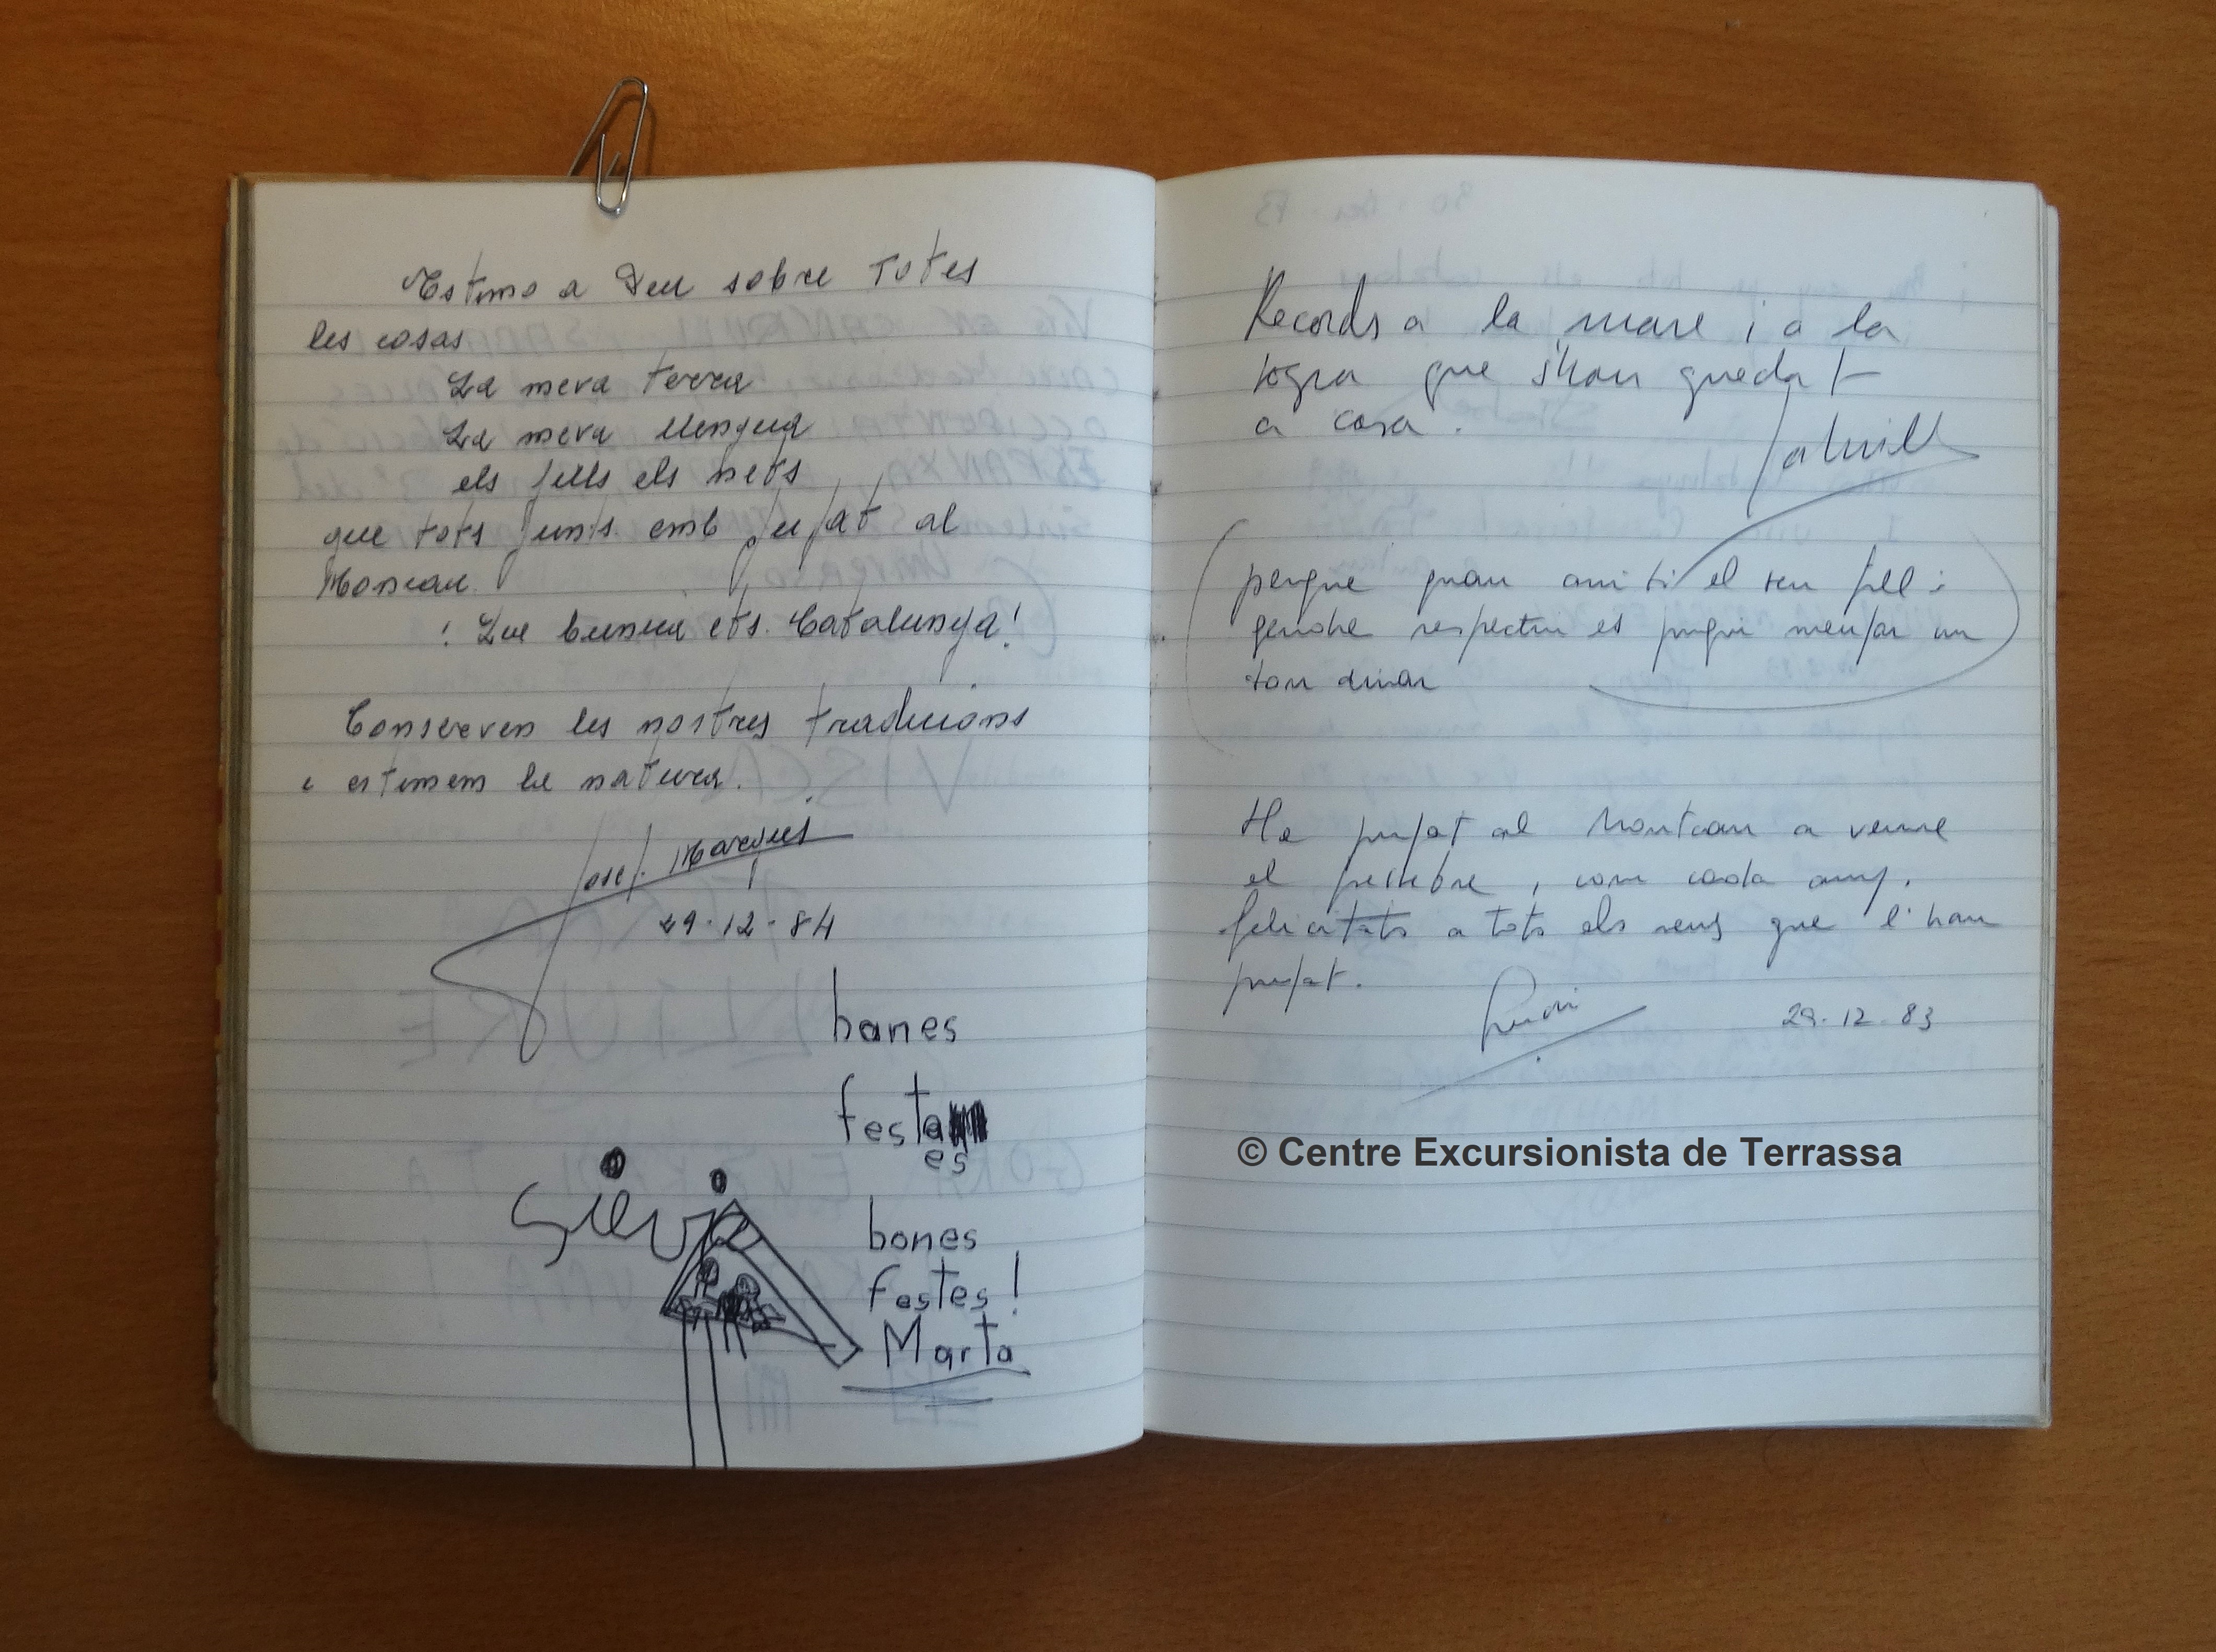 Estimo a Deu sobre totes
les cosas
La meva terra
La meva llengua
els fills els nets
que tots junts emb pujat al
Moncau
! Que bunica ets. Catalunya!
Conserven les nostres tradicions
i estimem le natura.
Josep Marques
29-12-84
bones
festa
es
Silvia
bones
festes!
Marta
Records a la mare i a la
sogra que s'han quedat
a casa.
perque quan arribi el seu fill i
gendre respectiu es pugui menjar un
bon dinar
He pujat al Montcau a veure
el pessebre, com cada any.
felicitats a tots els seus que l'han
pujat.
29-12-83
© Centre Excursionista de Terrassa